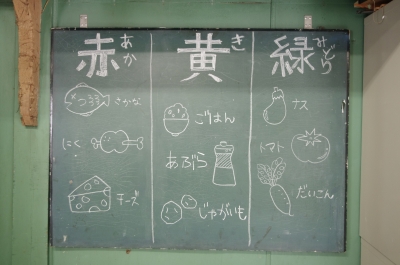 赤 あか
さかな
にく
チーズ
黄 き
ごはん
あぶら
じゃがいも
緑 みどり
ナス
トマト
だいこん